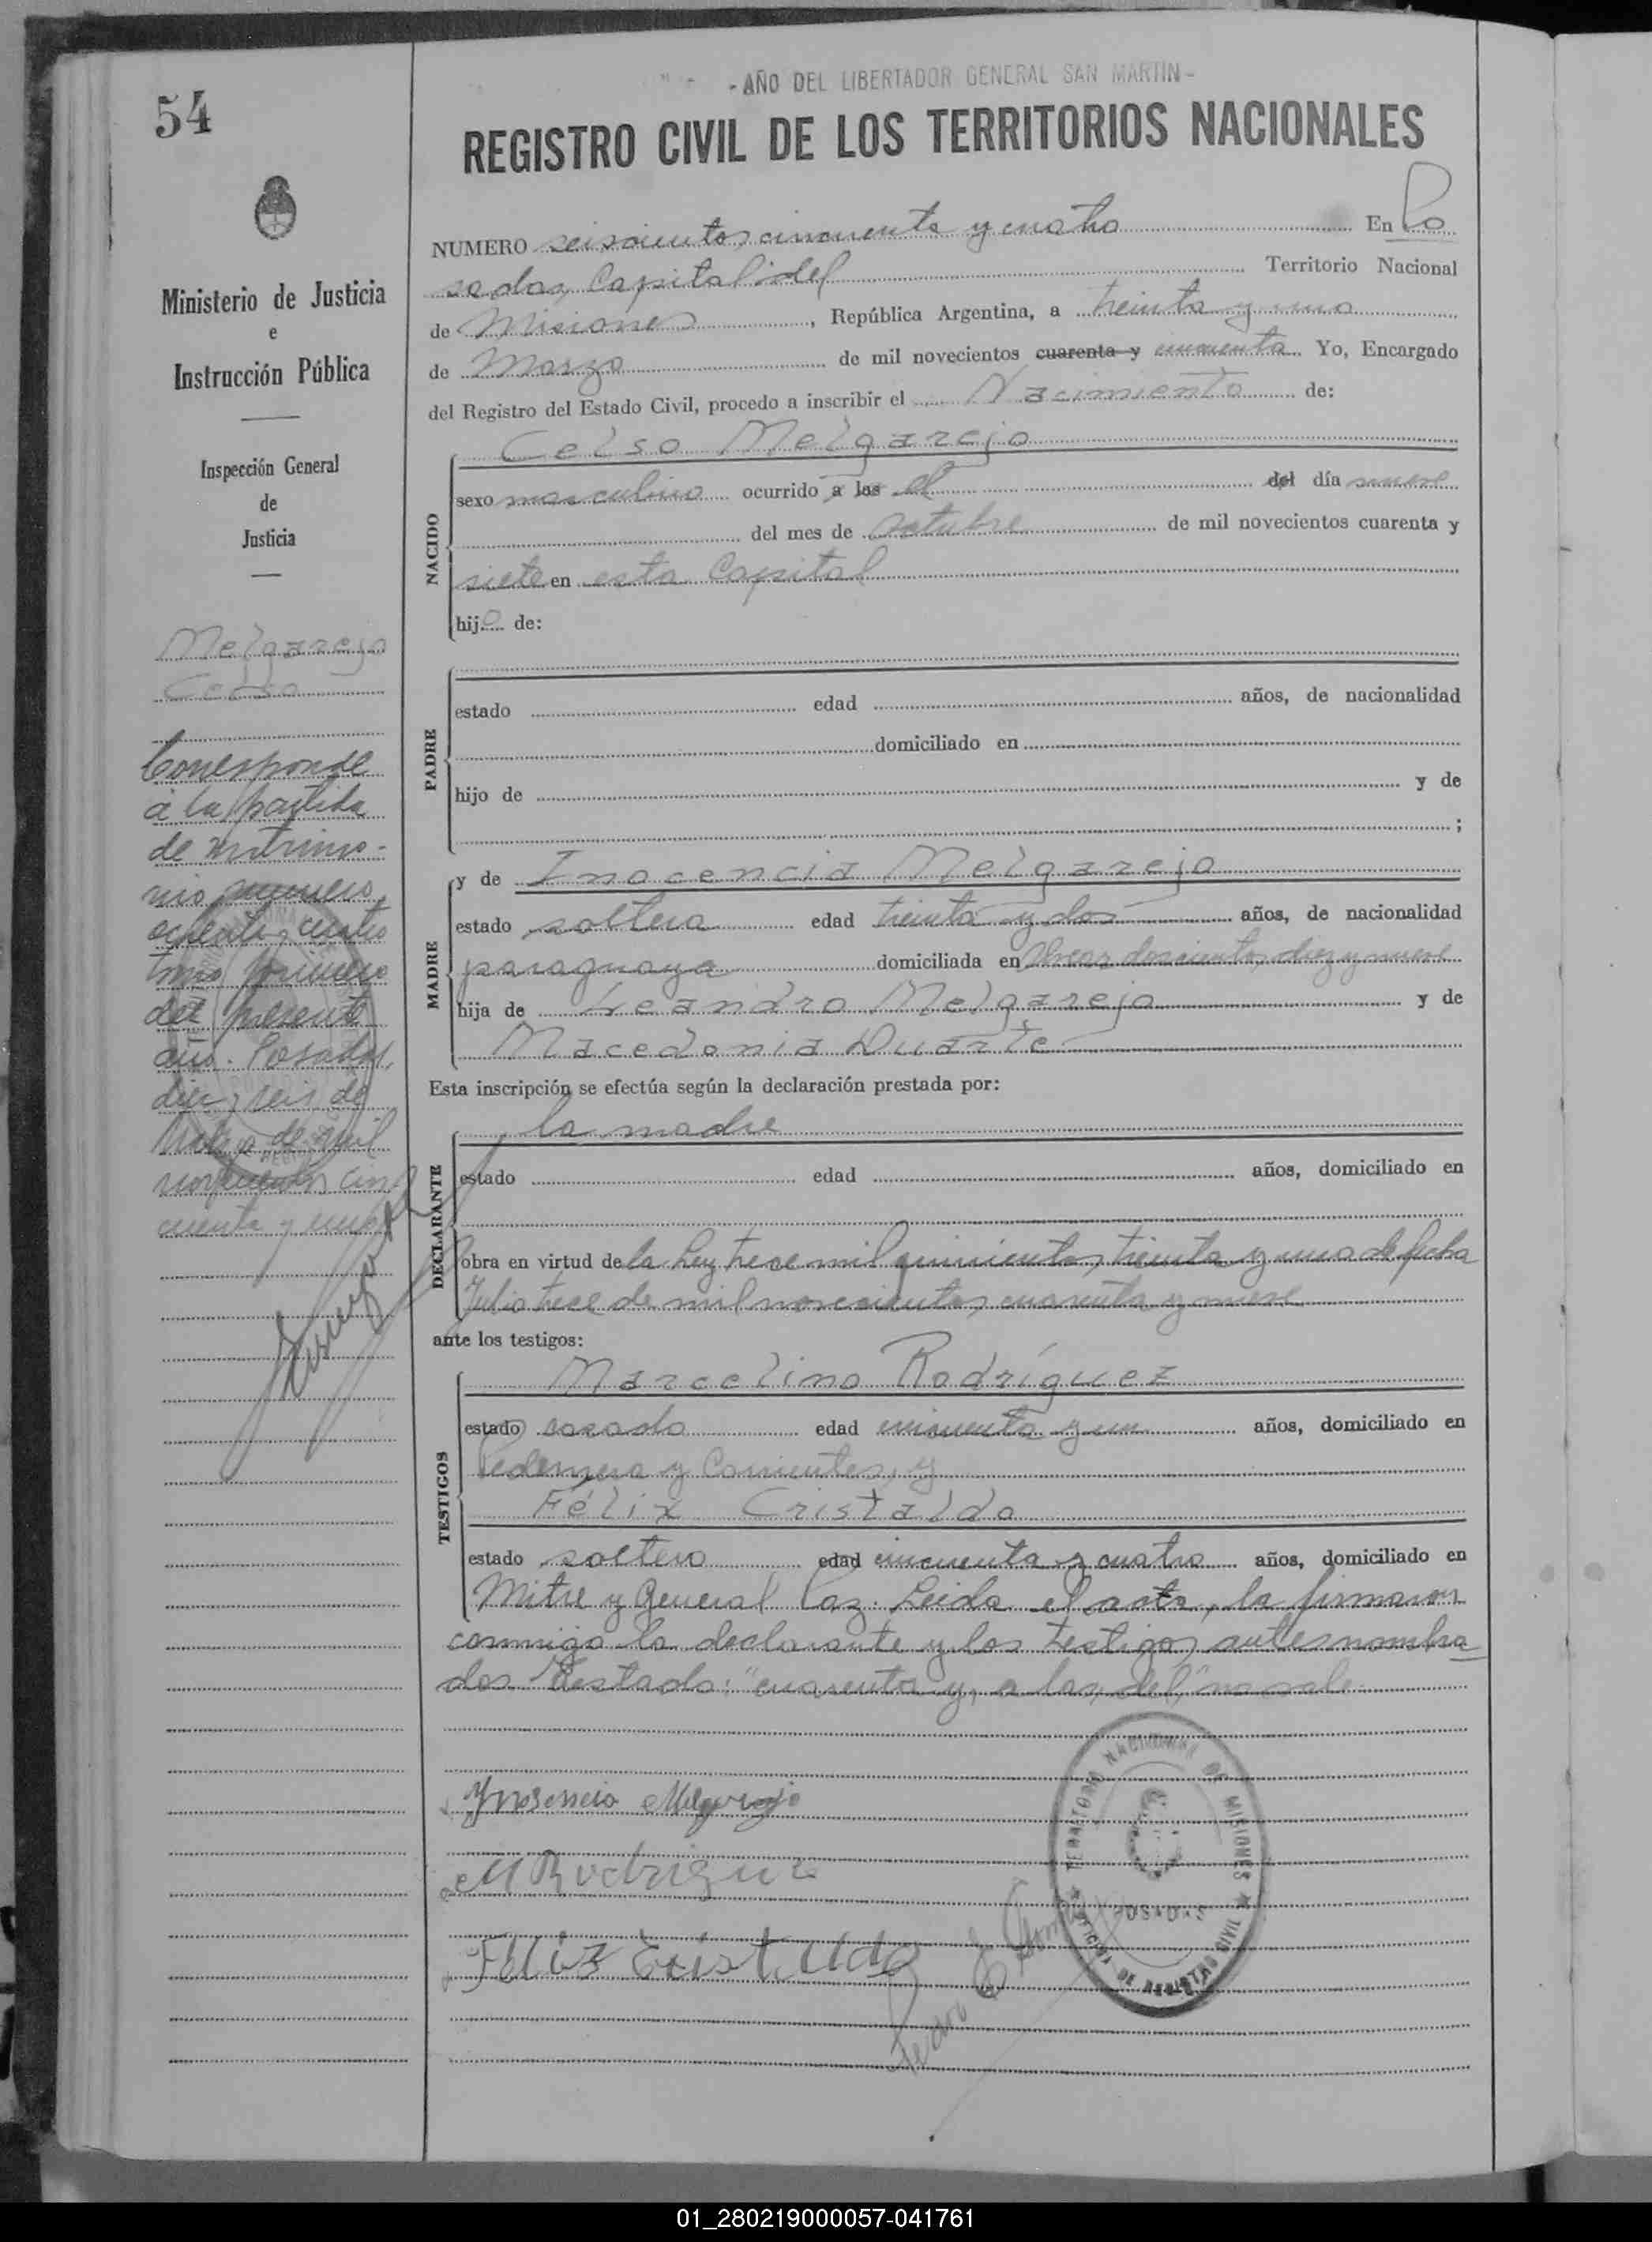 54
- AÑO DEL LIBERTADOR GENERAL SAN MARTIN -
REGISTRO CIVIL DE LOS TERRITORIOS NACIONALES
Ministerio de Justicia
e
Instrucción Pública
Inspección General
de
Justicia
Melgarejo
Celso
Corresponde
a la partida
de matrimo-
nio número
ochenta y cuatro
tomo primero
del presente
año. Posadas,
diez y seis de
de mil
novecientos cin
cuenta y
NUMERO seiscientos cincuenta y cuatro En Po
sadas, Capital del Territorio Nacional
de Misiones, República Argentina, a treinta y uno
de Marzo de mil novecientos cuarenta y cincuenta Yo, Encargado
del Registro del Estado Civil, procedo a inscribir el Nacimiento de:
Celso Melgarejo
NACIDO
sexo masculino ocurrido a las el del día nueve
del mes de octubre de mil novecientos cuarenta y
siete en esta Capital
hijo de:
PADRE
estado edad años, de nacionalidad
domiciliado en
hijo de y de
;
MADRE
y de Inocencia Melgarejo
estado soltera edad treinta y dos años, de nacionalidad
paraguaya domiciliada en doscientos diez y nueve
hija de Leandro Melgarejo y de
Macedonia Duarte
Esta inscripción se efectúa según la declaración prestada por:
DECLARANTE
la madre
estado edad años, domiciliado en
obra en virtud de la Ley trece mil quinientos treinta y una de fecha
Julio trece de mil novecientos cuarenta y nueve
ante los testigos:
TESTIGOS
Marcelino Rodríguez
estado casado edad cincuenta y un años, domiciliado en
Pedernera y Corrientes, y
Félix Cristaldo
estado soltero edad cincuenta y cuatro años, domiciliado en
Mitre y General Paz. Leida el acta, la firmaron
conmigo la declarante y los testigos antes nombra
dos. Testado: "cuarenta y, a las, del," no vale.
Ynosencia Melgarejo
M Rodriguez
Felix Cristaldo
TERRITORIO NACIONAL DE MISIONES
POSADAS
OFICINA DE REGISTRO CIVIL
01_280219000057-041761